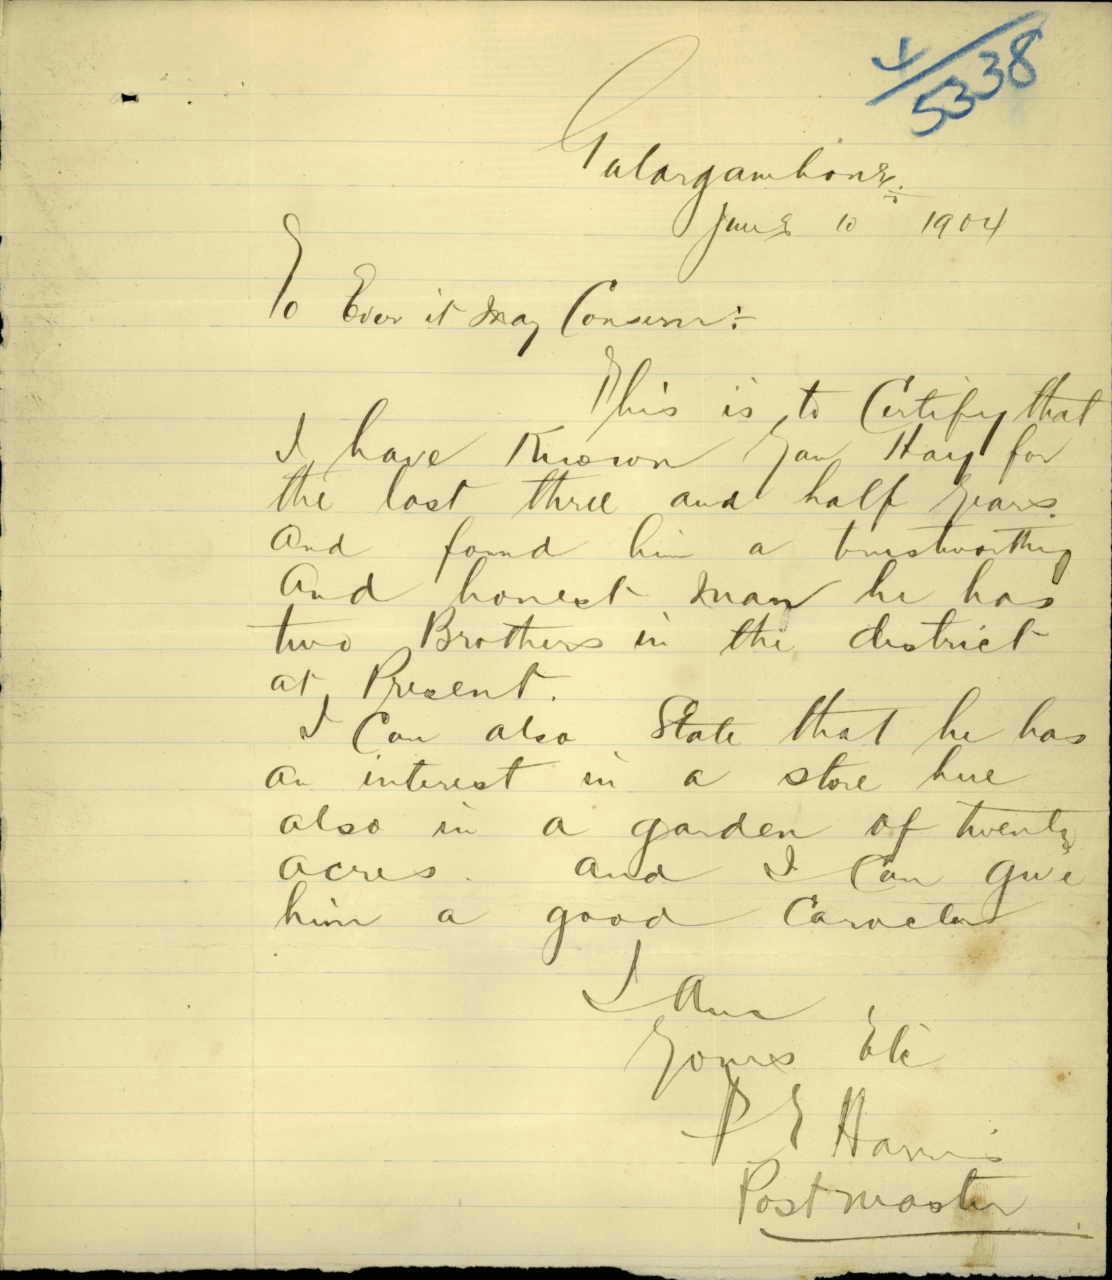 4/5338
Gulargambone
June 10 1904
To Ever it May Concern:
This is to Certify that
I have Known Gau Hay for
the last three and half years.
And found him a trustworthy
And honest man he has
two Brothers in the district
at Present.
I Can also State that he has
an interest in a store here
also in a garden of twenty
acres. and I Can give
him a good Caracter
I Am
Yours Etc
E Harris
Postmaster